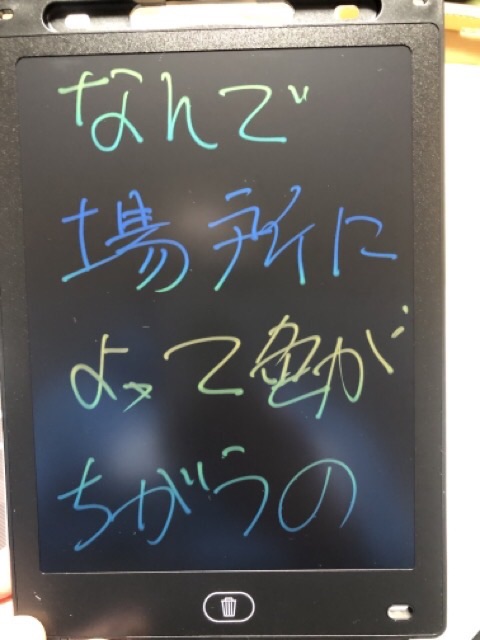 なんで
場所に
よって色が
ちがうの